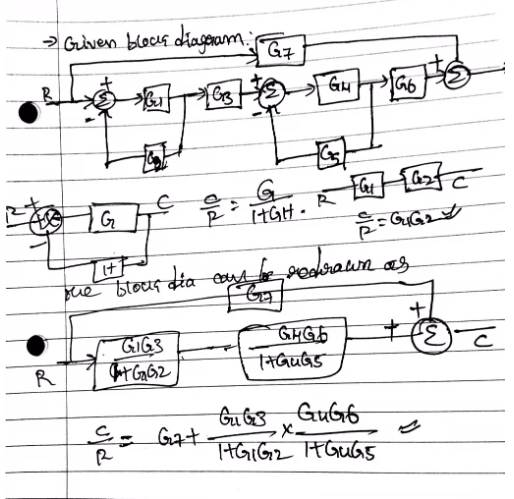 → Given block diagram:
G7
R + Σ G1 G3 + Σ G4 G6 + Σ
- -
G2 G5
R + G C C/R = G/1+GH . R G1 G2 C
- C/R = G1G2
H
The block dia can be redrawn as
G7
R G1G3/1+G1G2 G4G6/1+G4G5 + + Σ C
C/R = G7 + G1G3/1+G1G2 × G4G6/1+G4G5